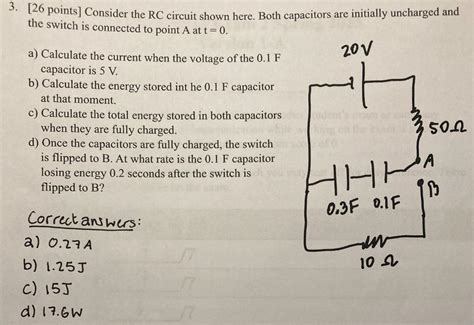 3. [26 points] Consider the RC circuit shown here. Both capacitors are initially uncharged and
the switch is connected to point A at t = 0.
a) Calculate the current when the voltage of the 0.1 F
capacitor is 5 V.
b) Calculate the energy stored int he 0.1 F capacitor
at that moment.
c) Calculate the total energy stored in both capacitors
when they are fully charged.
d) Once the capacitors are fully charged, the switch
is flipped to B. At what rate is the 0.1 F capacitor
losing energy 0.2 seconds after the switch is
flipped to B?
20V
50Ω
A
B
0.3F 0.1F
10 Ω
Correct answers:
a) 0.27A
b) 1.25J
c) 15J
d) 17.6W